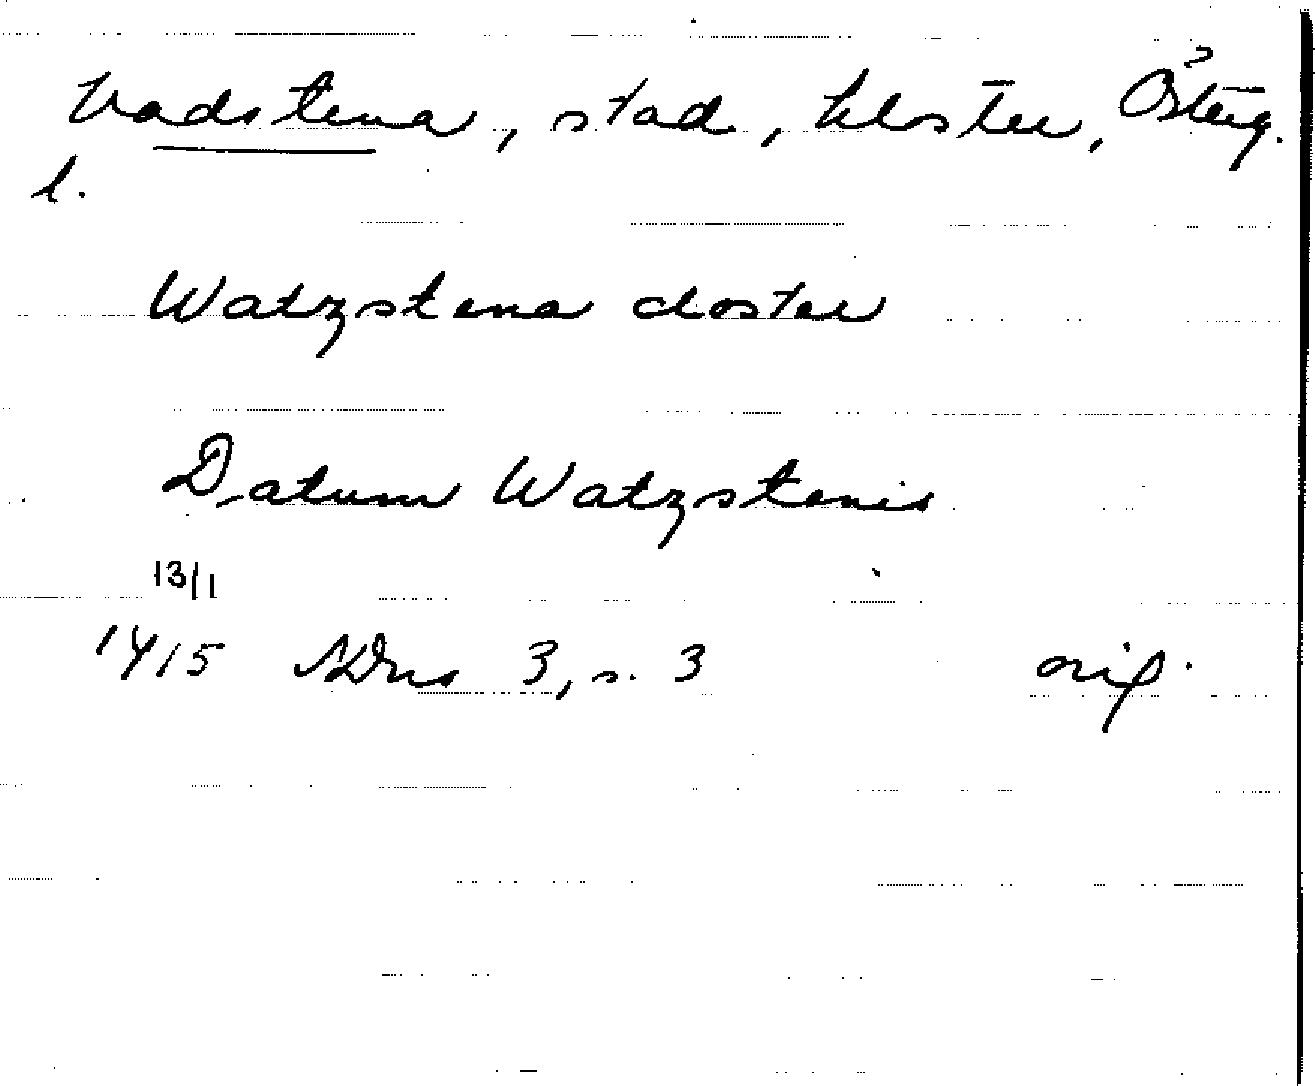 Vadstena, stad, kloster, Österg.
l.
Watzstena closter
Datum Watzstenis
13/1
1415 SDns 3, s. 3 orig.